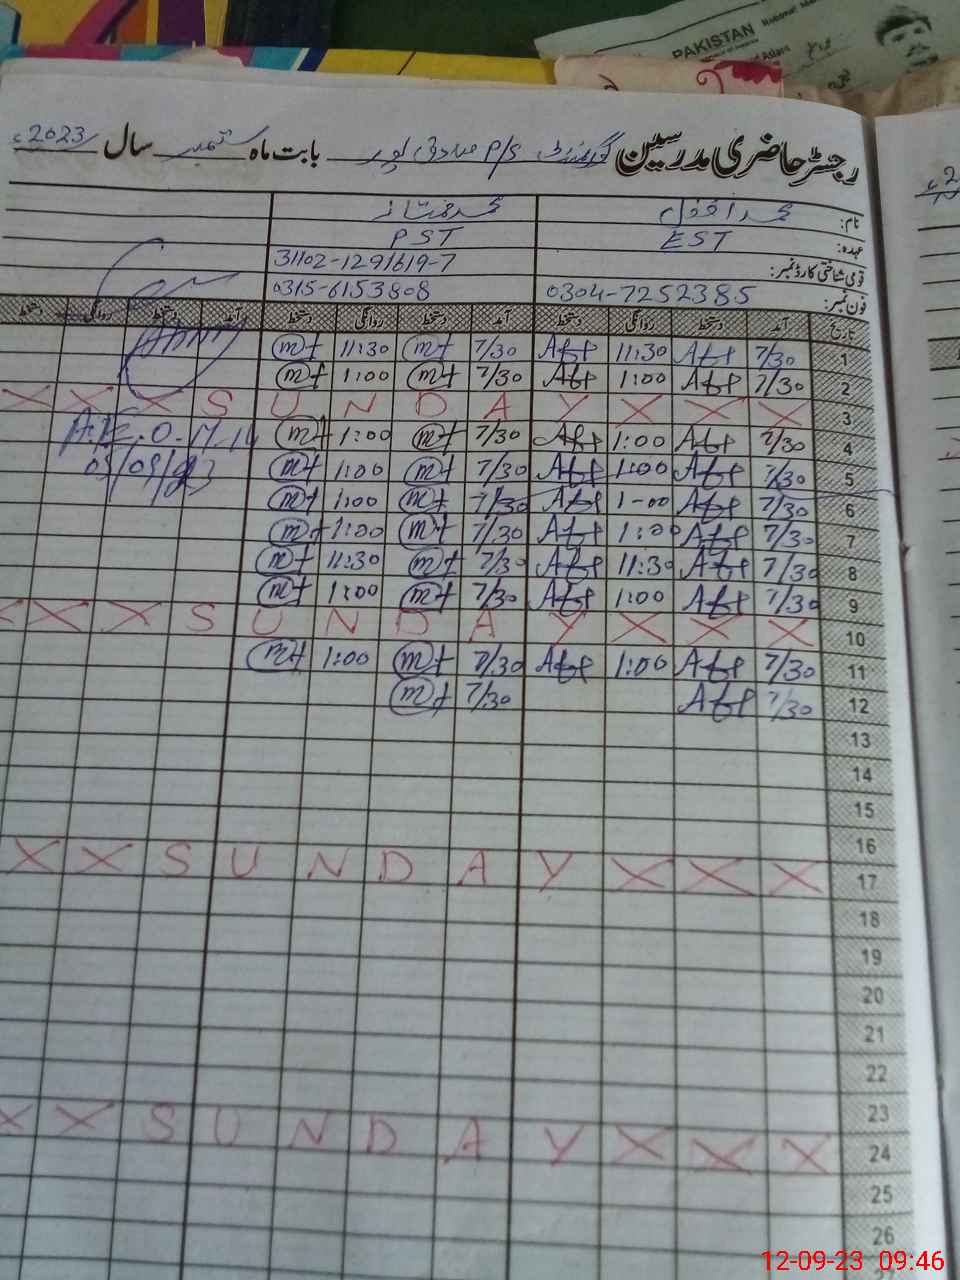 PAKISTAN
National Identity
رجسٹر حاضری مدرسین گورنمنٹ P/S صادق پور بابت ماہ ستمبر سال 2023ء
نام: محمد افضل محمد ممتاز
عہدہ: EST PST
قومی شناختی کارڈ نمبر: 31102-1291619-7
فون نمبر: 0304-7252385 0315-6153808
تاریخ آمد دستخط روانگی دستخط آمد دستخط روانگی دستخط آمد دستخط روانگی دستخط
1 7/30 Afl 11:30 Afl 7/30 mt 11:30 mt
2 7/30 Afl 1:00 Afl 7/30 mt 1:00 mt
X X X S U N D A Y X X X 3
4 7/30 Afl 1:00 Afl 7/30 mt 1:00 mt
A.E.O
5 7/30 Afl 1:00 Afl 7/30 mt 1:00 mt
05/09/23
6 7/30 Afl 1-00 Afl 7/30 mt 1:00 mt
7 7/30 Afl 1:00 Afl 7/30 mt 1:00 mt
8 7/30 Afl 11:30 Afl 7/30 mt 11:30 mt
9 7/30 Afl 1:00 Afl 7/30 mt 1:00 mt
X X X S U N D A Y X X X 10
11 7/30 Afl 1:00 Afl 7/30 mt 1:00 mt
12 7/30 Afl 7/30 mt
13
14
15
16
X X S U N D A Y X X X 17
18
19
20
21
22
23
X X S U N D A Y X X X 24
25
26
12-09-23 09:46